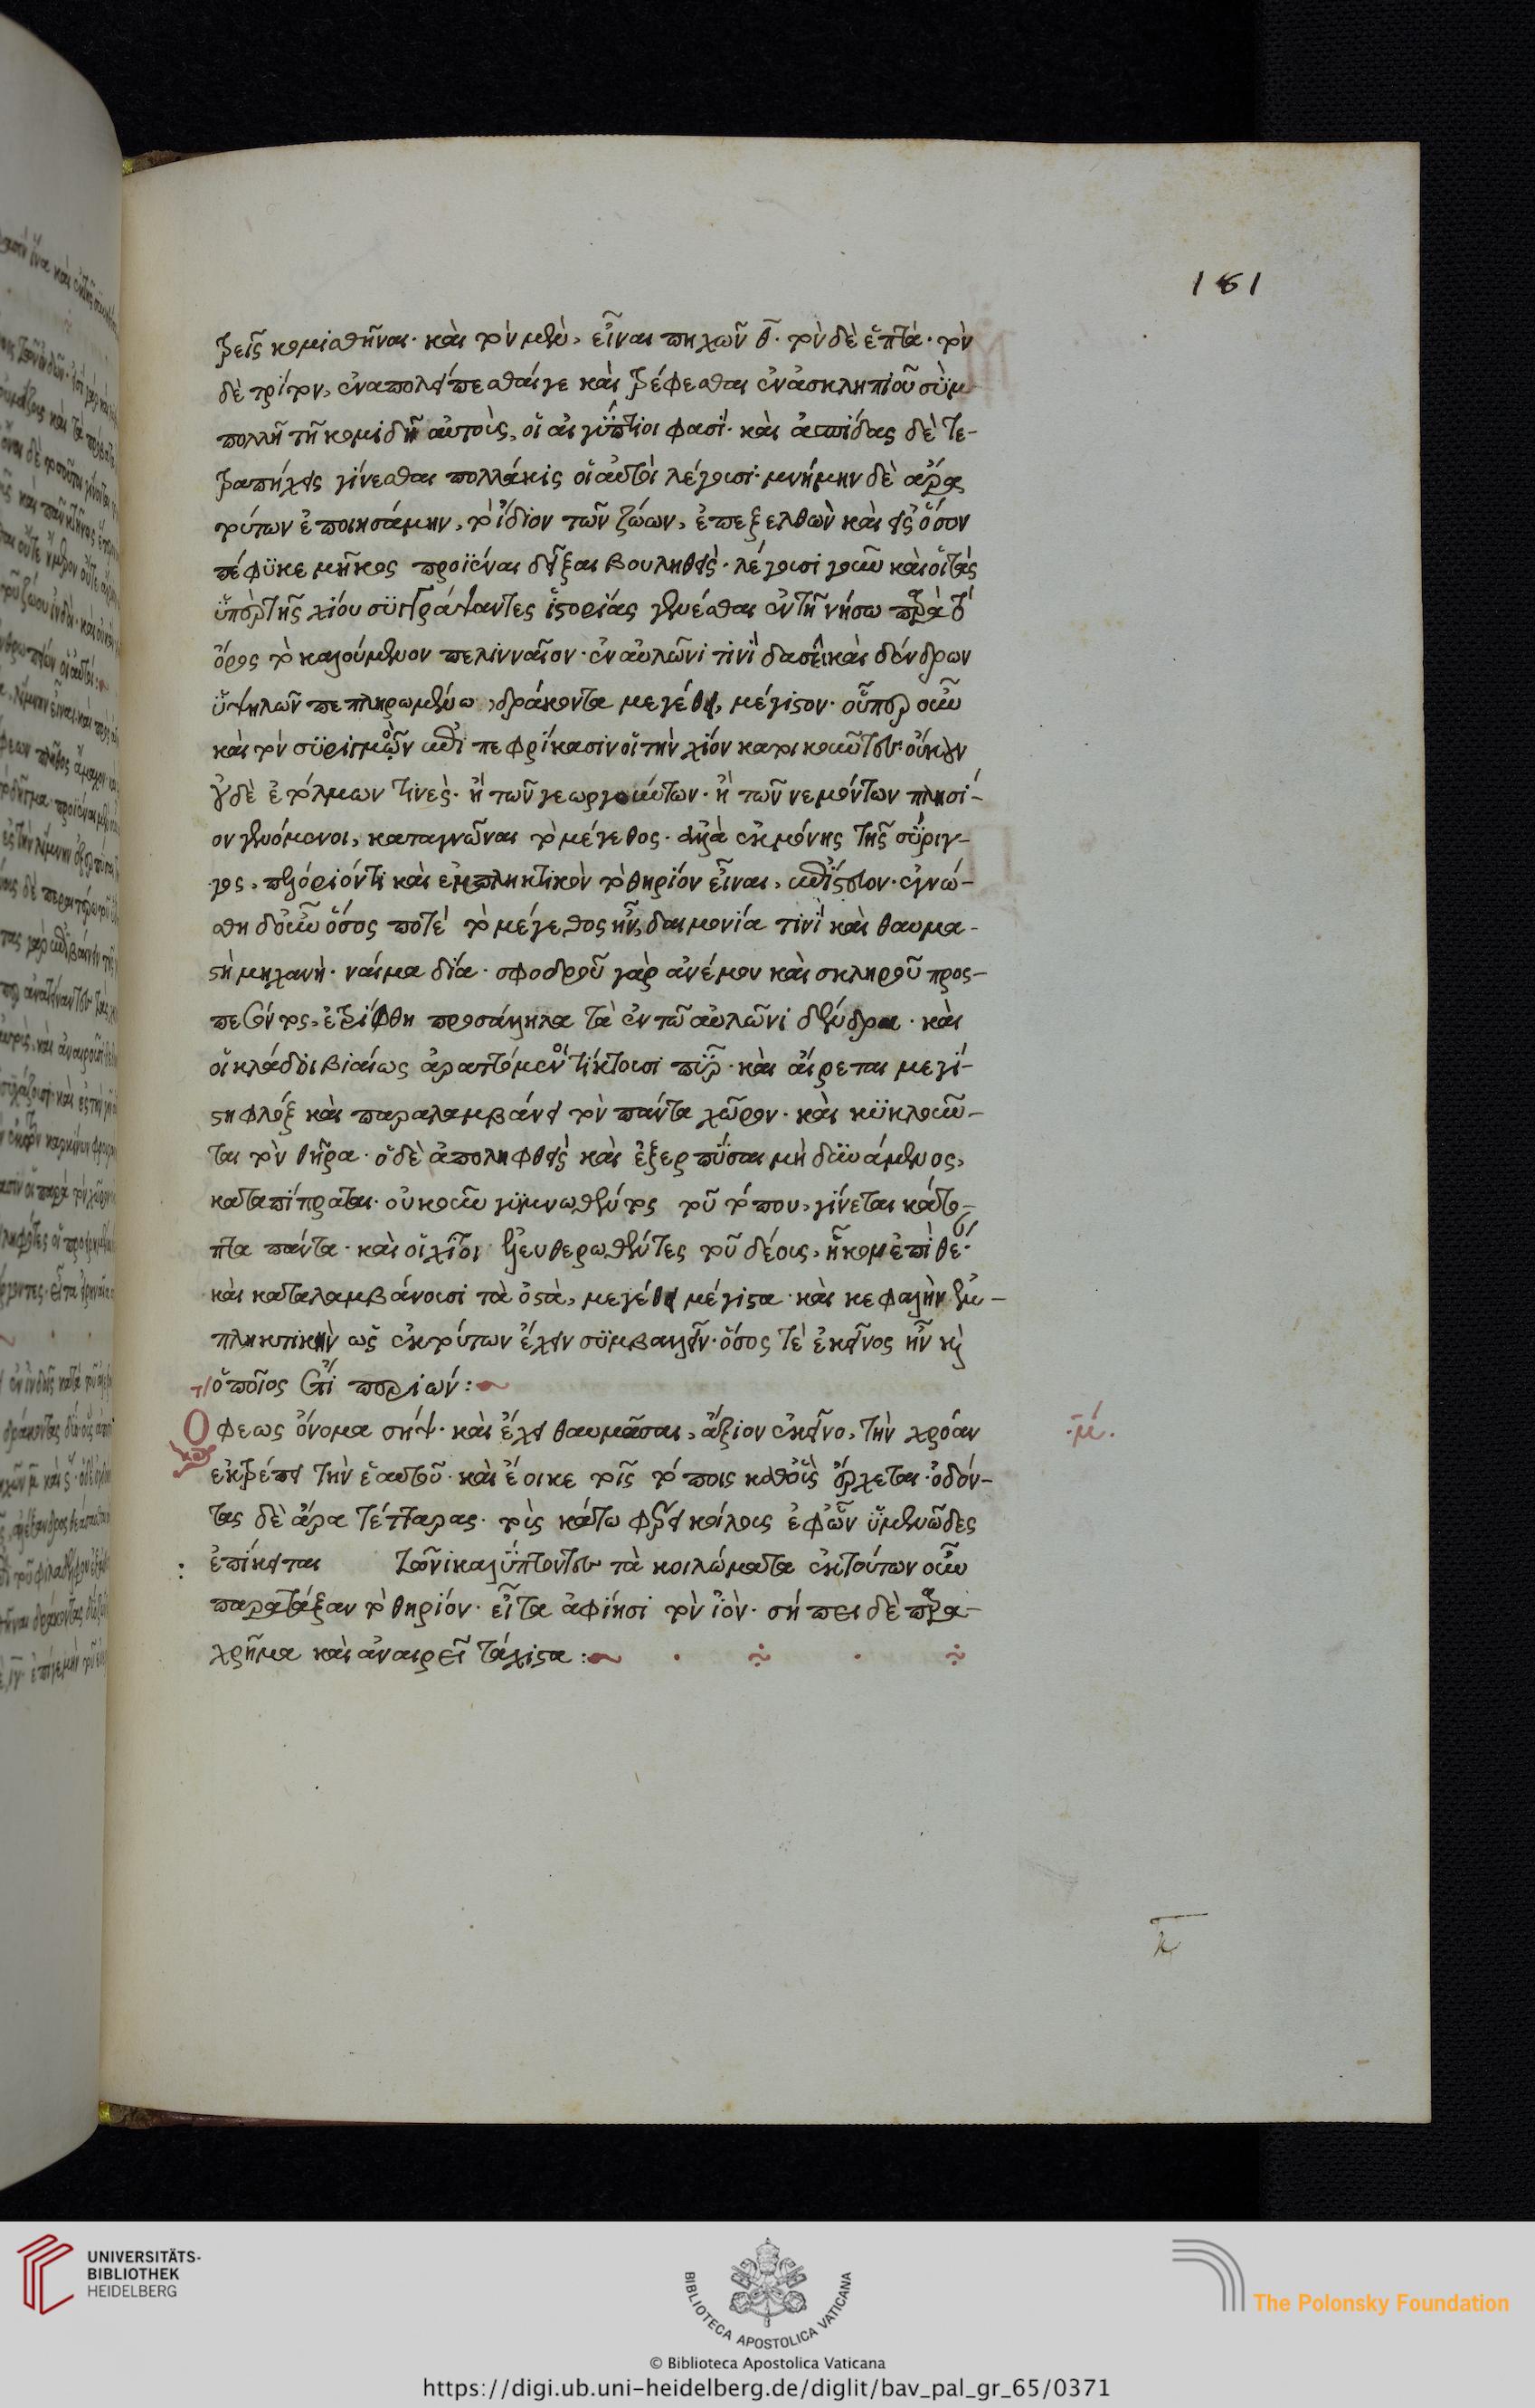 181
τρεῖς κομισθῆναι· καὶ τὸν μὲν, εἶναι πηχῶν θ̅· τὸν δὲ ἑπτά· τὸν
δὲ τρίτον, ἐναπολείπεσθαί γε καὶ τρέφεσθαι ἐν ἀσκληπιοῦ σὺμ
πολλῆ τῆ κομιδῆ αὐτοὶς, οἵ αἰγΰπτιοι φασΐ· καὶ ἀσπίδας δὲ τε-
τραπήχεις γίνεσθαι πολλάκις οἵ αὐτοὶ λέγουσι· μνήμην δὲ ἄρα
τούτων ἐποιησάμην, τὸ ἴδιον τῶν ζώων, ἐπεξελθὼν καὶ εἰς ὅσον
πέφϋκε μῆκος προϊέναι δεῖξαι βουληθεὶς· λέγουσι γοῦν καὶ οἵ τὰς
ὕπὲρ τῆς χίου σϋγγράψαντες ἵστορίας γενέσθαι ἐν τῆ νήσω παρὰ τὸ
ὄρος τὸ καλούμενον πελινναῖον· ἐν αὐλῶνι τινὶ δασεῖ καὶ δένδρων
ὕψηλῶν πεπληρωμένω, δράκοντα μεγέθει, μέγιστον· οὗπερ οὖν
καὶ τὸν σϋριγμὸν πεφρίκασιν οἵ τὴν χίον κατοικοῦντες· οὔκουν
οὐδὲ ἐτόλμων τινὲς· ἢ τῶν γεωργούντων· ἢ τῶν νεμόντων πλησί-
ον γενόμενοι, καταγνῶναι τὸ μέγεθος· ἀλλὰ ἐκ μόνης τῆς σΰριγ-
γος, πελώριόν τι καὶ ἐκπληκτικὸν τὸ θηρίον εἶναι, ἐπίστευον· ἐγνώ-
σθη δοῦν ὅσος ποτέ τὸ μέγεθος ἦν, δαιμονία τινὶ καὶ θαυμα-
στὴ μηχανὴ· ναίμα δία· σφοδροῦ γὰρ ἀνέμου καὶ σκληροῦ προς-
πεσόντος, ἐτρίφθη προσάλληλα τὰ ἐν τῶ αὐλῶνι δένδρα· καὶ
οἵ κλάδοι βιαίως ἀραττόμενοι τίκτουσι πῦρ· καὶ αἴρεται μεγί-
στη φλὸξ καὶ παραλαμβάνει τὸν πάντα χῶρον· καὶ κϋκλοῦ-
ται τὸν θῆρα· ὅ δὲ ἀποληφθεὶς καὶ ἐξερπΰσαι μὴ δϋνάμενος,
καταπίπραται· οὐκοῦν γϋμνωθέντος τοῦ τόπου, γίνεται κάτο-
πτα πάντα· καὶ οἵ χῖοι ἐλευθερωθέντες τοῦ δέους, ἧκον ἐπὶ θέ·
καὶ καταλαμβάνουσι τὰ ὀστὰ, μεγέθει μέγιστα· καὶ κεφαλὴν ἐκ-
πληκτικὴν ως ἐκ τούτων ἔχειν σϋμβαλεῖν· ὅσος τὲ ἐκεῖνος ἦν κὶ
ὅποῖος ἔτι περιών:
Οφεως ὄνομα σήψ· καὶ ἔχει θαυμᾶσαι, ἄξιον ἐκεῖνο, τὴν χρόαν
ἐκτρέπει τὴν ἑαυτοῦ· καὶ ἔοικε τοῖς τόποις καθοὓς ἔρχεται· ὀδόν-
τας δὲ ἄρα τέτταρας· τοὺς κάτω φέρει κοίλους ἐφὧν ὕμενῶδες
ἐπίκειται καλΰπτοντες τὰ κοιλώματα ἐκ τούτων οὖν
παρατάξαν τὸ θηρίον· εἶτα ἀφίησι τὸν ἰὸν· σήπει δὲ παρα-
χρῆμα καὶ ἀναιρεῖ τάχιστα:
·μ̅·
UNIVERSITÄTS-
BIBLIOTHEK
HEIDELBERG
BIBLIOTECA APOSTOLICA VATICANA
The Polonsky Foundation
© Biblioteca Apostolica Vaticana
https://digi.ub.uni-heidelberg.de/diglit/bav_pal_gr_65/0371